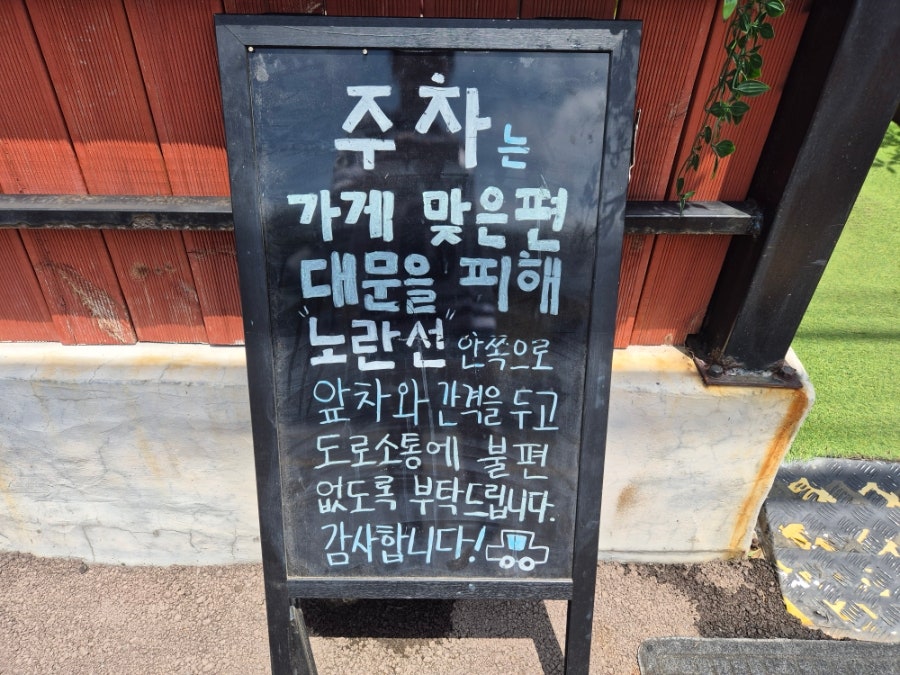 주차는
가게 맞은편
대문을 피해
"노란선" 안쪽으로
앞차와 간격을 두고
도로소통에 불편
없도록 부탁드립니다.
감사합니다!